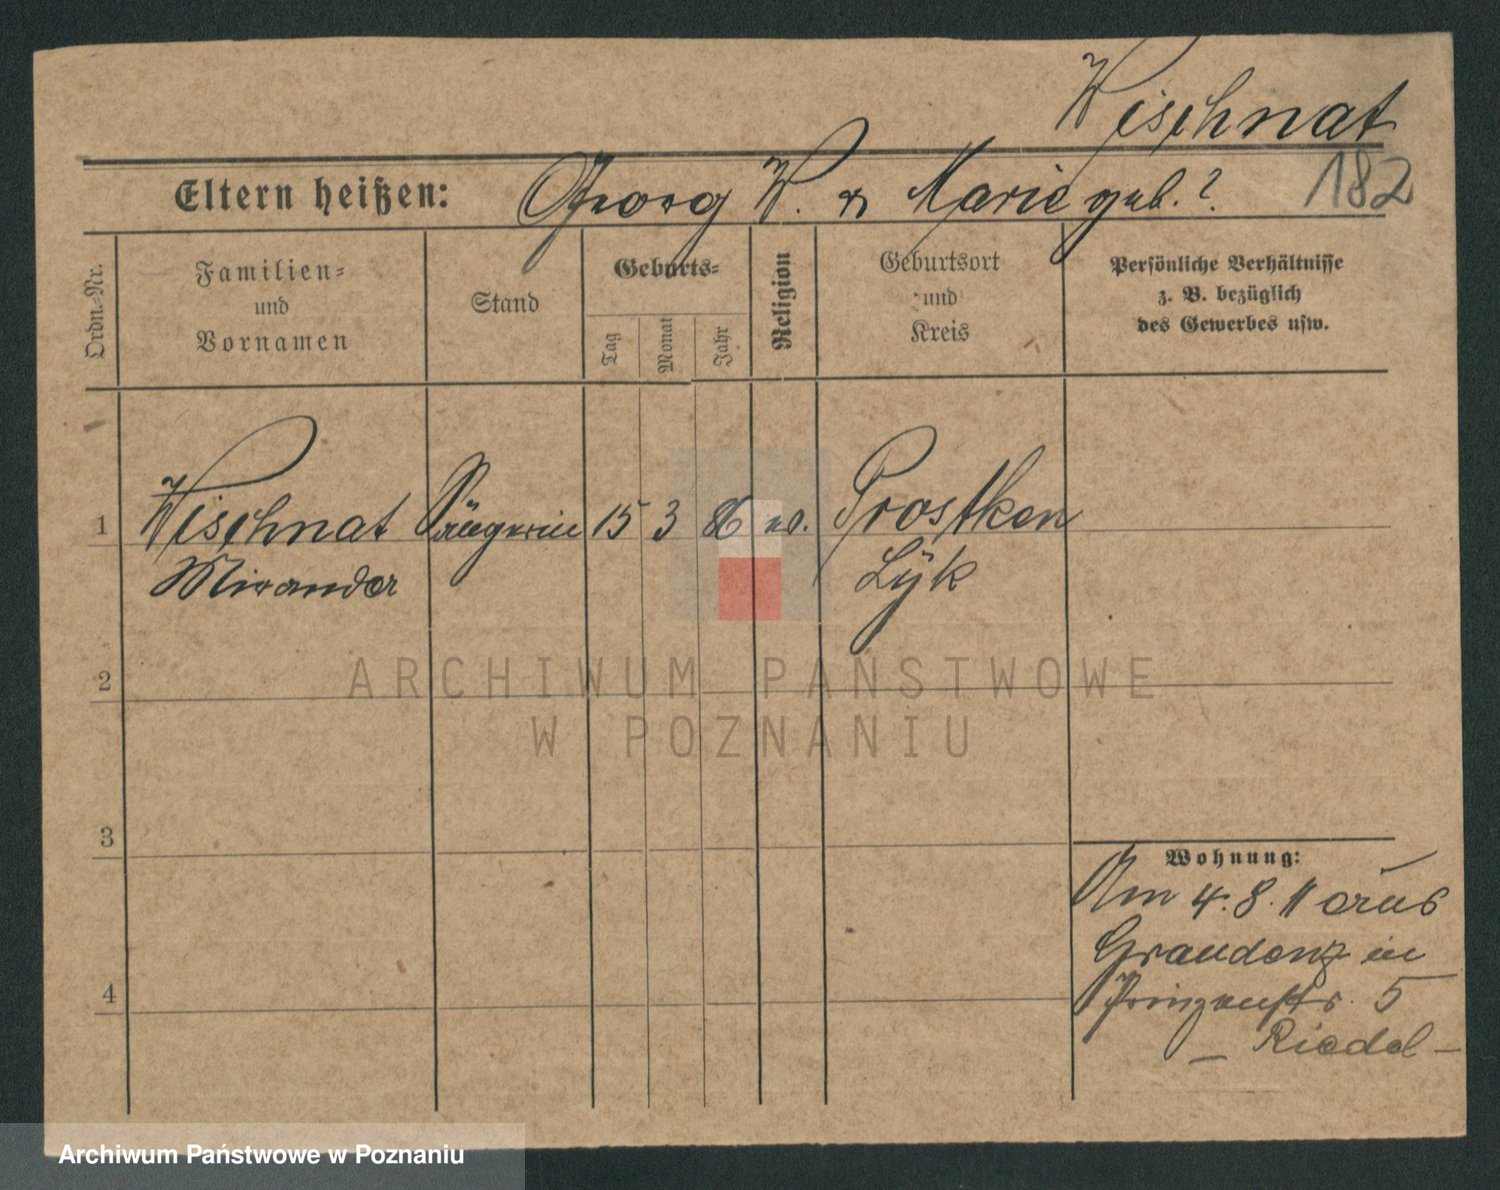 Wischnat
182
Eltern heißen: Georg W. & Marie geb. ?
Ordn.-Nr.
Familien=
und
Vornamen
Stand
Geburts=
Tag
Monat
Jahr
Religion
Geburtsort
und
Kreis
Persönliche Verhältnisse
z. B. bezüglich
des Gewerbes usw.
1 Wischnat Sängerin 15 3 86 ev. Prostken
Miranda Lyk
2
3
4
Wohnung:
Am 4.8.11 aus
Graudenz in
Prinzenstr. 5
– Riedel –
ARCHIWUM PAŃSTWOWE
W POZNANIU
Archiwum Państwowe w Poznaniu